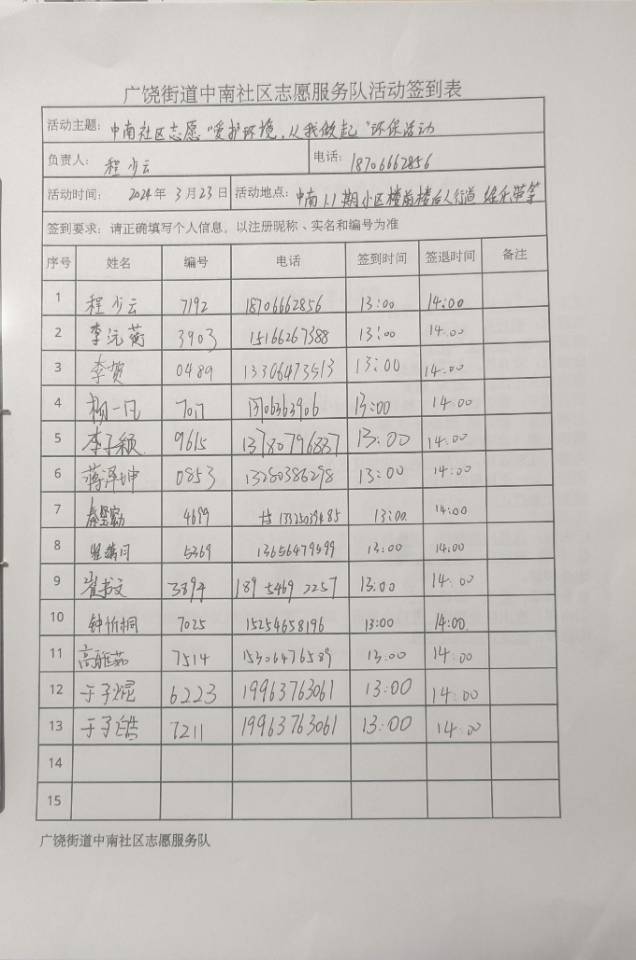 广饶街道中南社区志愿服务队活动签到表
活动主题：中南社区志愿"爱护环境，从我做起"环保活动
负责人：程少云 电话：18706662856
活动时间：2024年3月23日 活动地点：中南1.1期小区楼前楼后人行道 绿化带等
签到要求：请正确填写个人信息，以注册昵称、实名和编号为准
序号 姓名 编号 电话 签到时间 签退时间 备注
1 程少云 7192 18706662856 13:00 14:00
2 李沅蘅 3903 15166267388 13:00 14:00
3 李贺 0489 13306473513 13:00 14:00
4 杨一凡 7017 13:00 14:00
5 李子颖 9615 13780796887 13:00 14:00
6 蒋泽坤 0853 13280386298 13:00 14:00
7 4699 13:00 14:00
8 5369 13656479499 13:00 14:00
9 崔书文 3894 189 5469 2257 13:00 14:00
10 钟忻桐 7025 15254658196 13:00 14:00
11 7514 15306476589 13:00 14:00
12 于子焜 6223 19963763061 13:00 14:00
13 于子皓 7211 19963763061 13:00 14:00
14
15
广饶街道中南社区志愿服务队